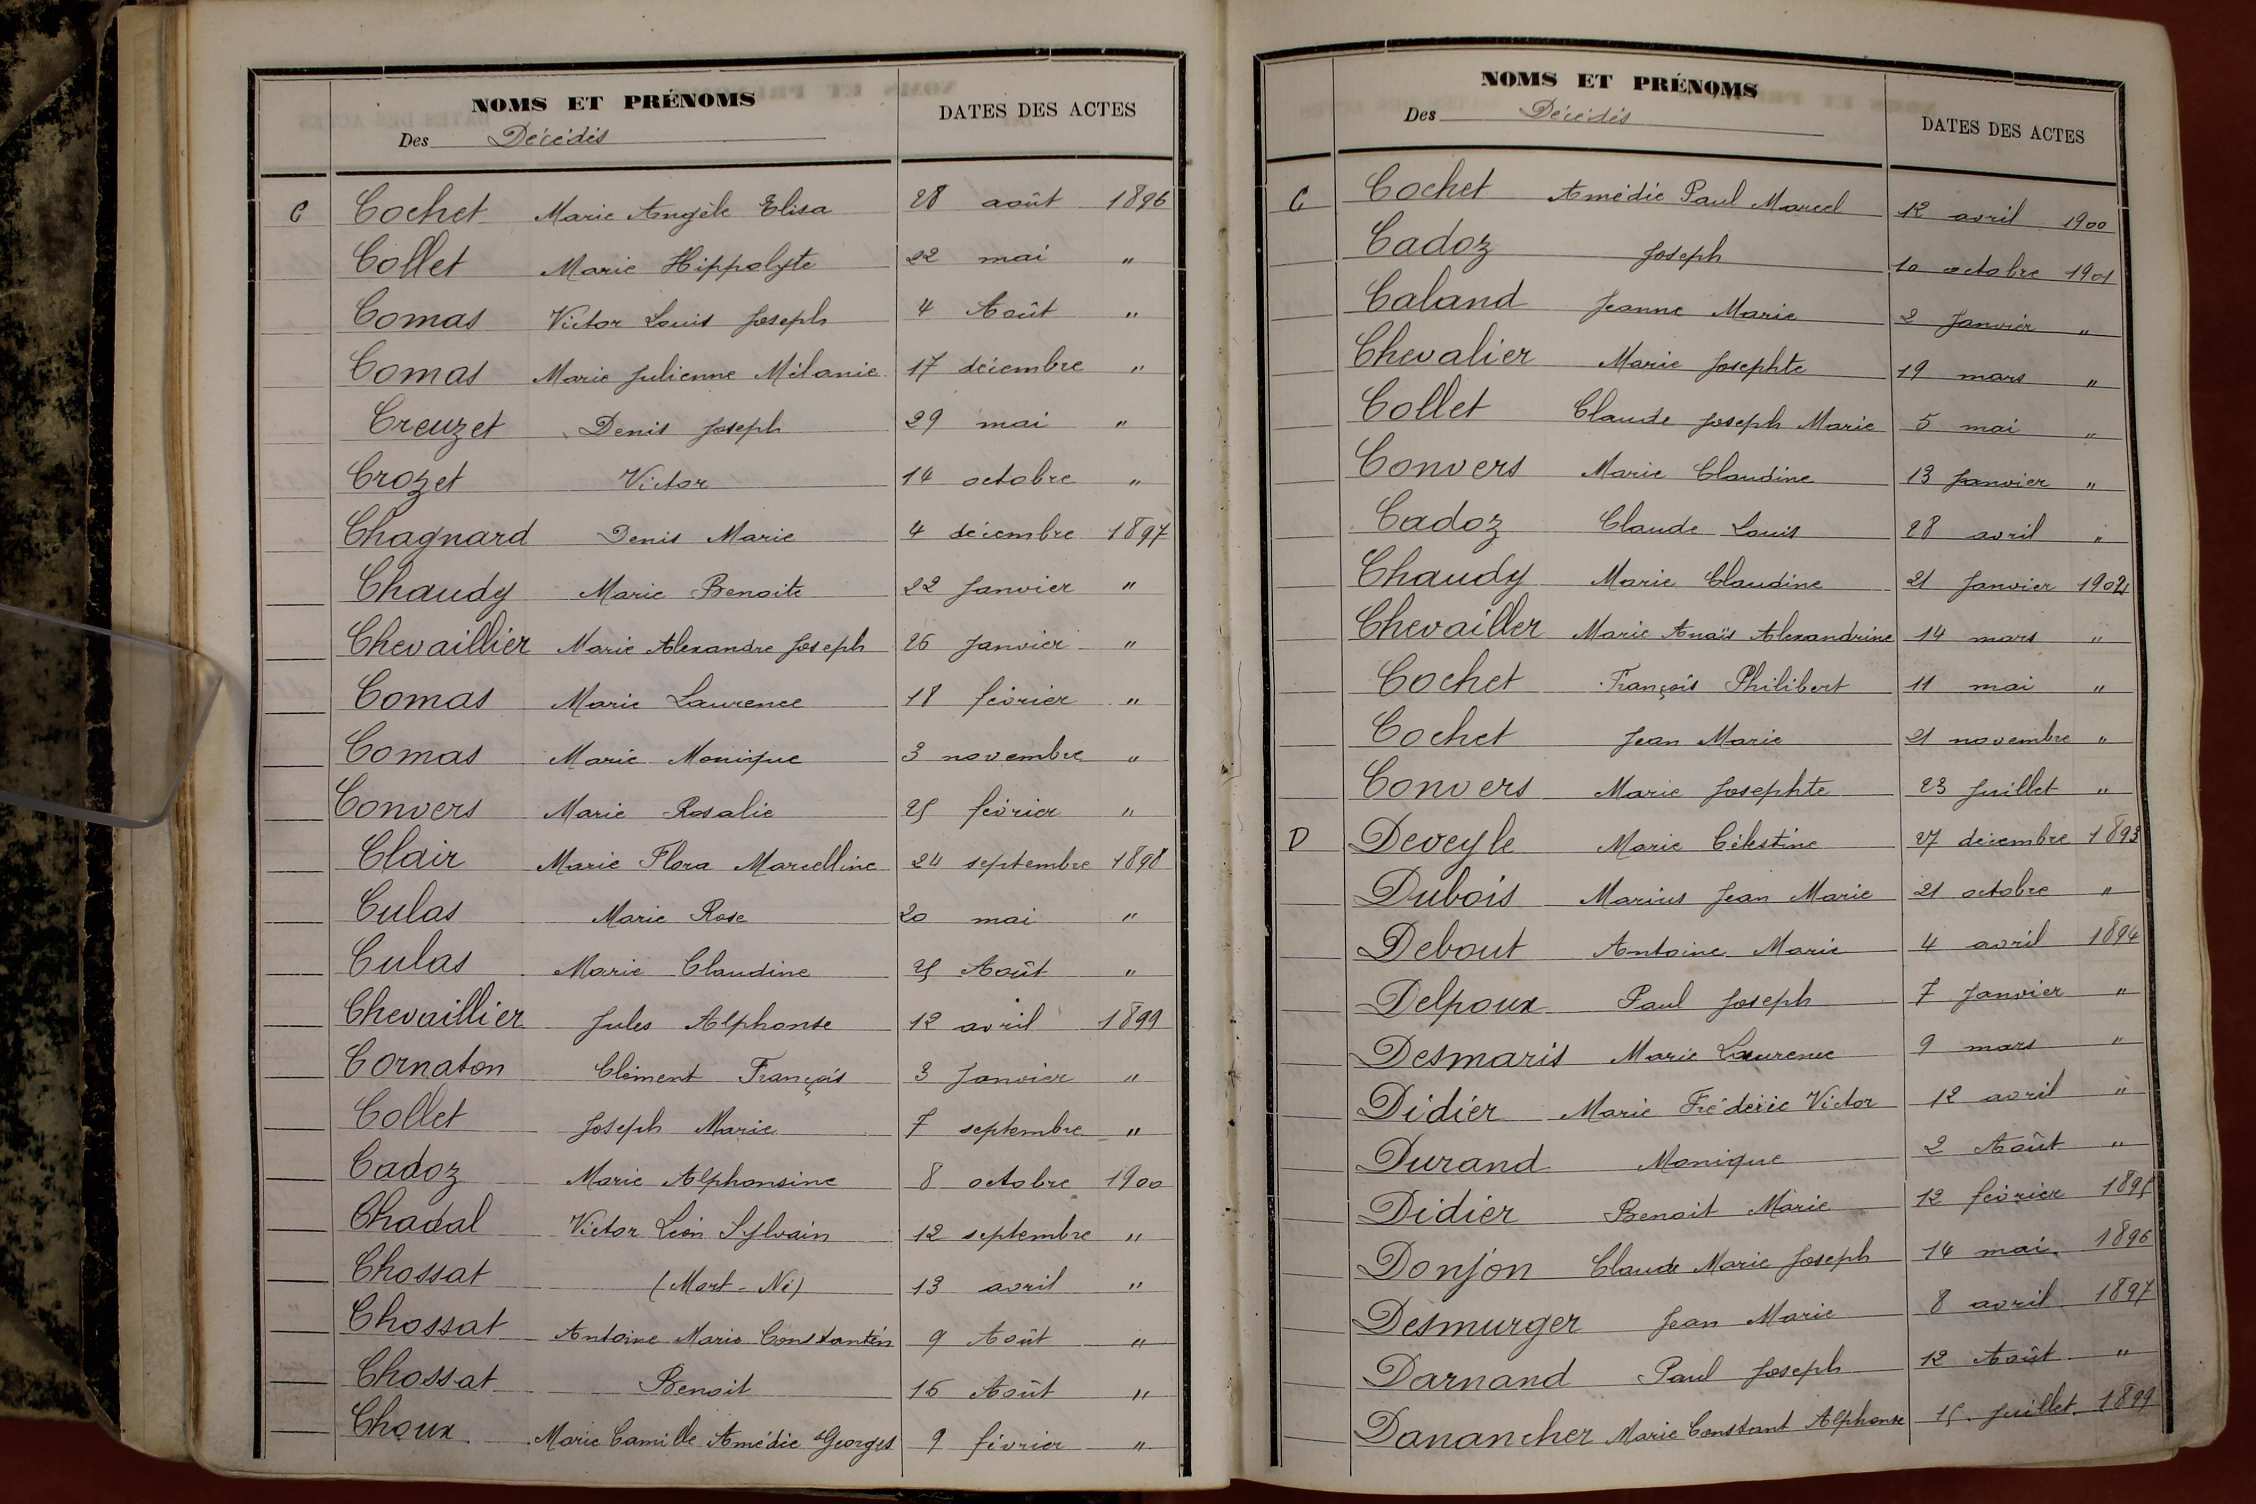 NOMS ET PRÉNOMS
Des Décédés
DATES DES ACTES
C Cochet Marie Angèle Elisa 28 août 1896
Collet Marie Hippolyte 22 mai "
Comas Victor Louis Joseph 4 Août "
Comas Marie Julienne Mélanie 17 décembre "
Creuzet Denis Joseph 29 mai "
Crozet Victor 14 octobre "
Chagnard Denis Marie 4 décembre 1897
Chaudy Marie Benoite 22 Janvier "
Chevaillier Marie Alexandre Joseph 26 Janvier "
Comas Marie Laurence 18 février "
Comas Marie Monique 3 novembre "
Convers Marie Rosalie 25 février "
Clair Marie Flora Marcelline 24 septembre 1898
Culas Marie Rose 20 mai "
Culas Marie Claudine 25 Août "
Chevaillier Jules Alphonse 12 avril 1899
Cornaton Clément François 3 Janvier "
Collet Joseph Marie 7 septembre "
Cadoz Marie Alphonsine 8 octobre 1900
Chadal Victor Léon Sylvain 12 septembre "
Chossat (Mort-Né) 13 avril "
Chossat Antoine Marie Constantin 9 Août "
Chossat Benoit 16 Août "
Choux Marie Camille Amédée Georges 9 février "
NOMS ET PRÉNOMS
Des Décédés
DATES DES ACTES
C Cochet Amédée Paul Marcel 12 avril 1900
Cadoz Joseph 10 octobre 1901
Caland Jeanne Marie 2 Janvier "
Chevalier Marie Josephte 19 mars "
Collet Claude Joseph Marie 5 mai "
Convers Marie Claudine 13 Janvier "
Cadoz Claude Louis 28 avril "
Chaudy Marie Claudine 21 Janvier 1902
Chevailler Marie Anaïs Alexandrine 14 mars "
Cochet François Philibert 11 mai "
Cochet Jean Marie 21 novembre "
Convers Marie Josephte 23 Juillet "
D Deveyle Marie Célestine 27 décembre 1893
Dubois Marius Jean Marie 21 octobre "
Debout Antoine Marie 4 avril 1894
Delpoux Paul Joseph 7 Janvier "
Desmaris Marie Laurence 9 mars "
Didier Marie Frédéric Victor 12 avril "
Durand Monique 2 Août "
Didier Benoit Marie 12 février 1895
Donjon Claude Marie Joseph 14 mai 1896
Desmurger Jean Marie 8 avril 1897
Darnand Paul Joseph 12 Août "
Danancher Marie Constant Alphonse 15 Juillet 1899